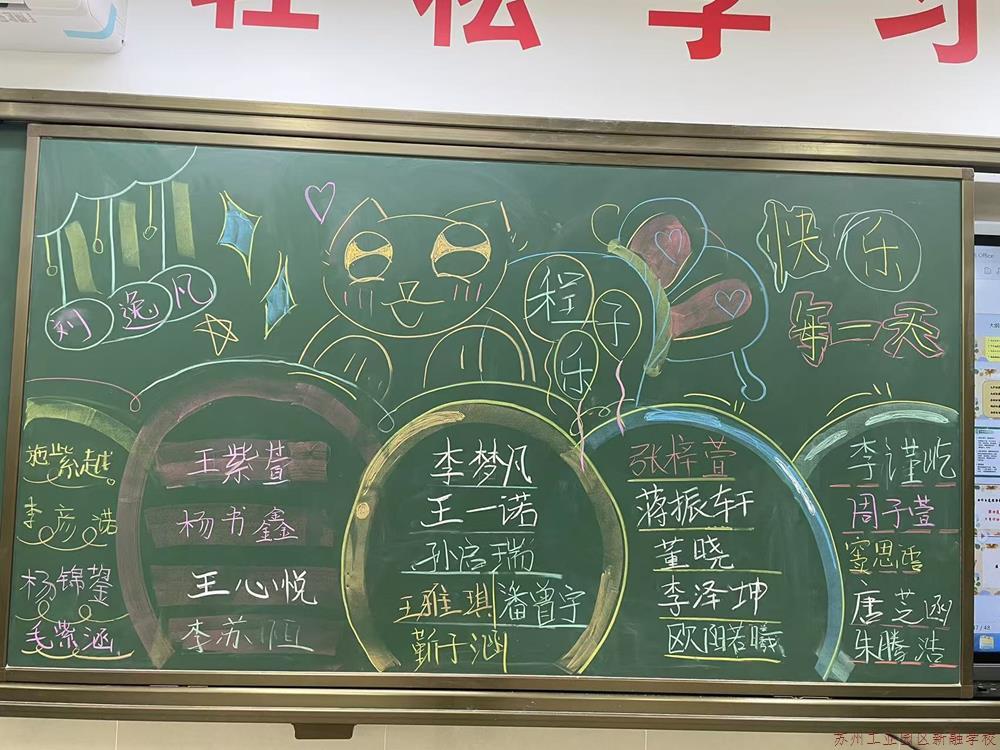 轻松学习
快乐
每一天
刘逸凡
程子乐
施紫越
李彦诺
杨锦鋆
毛紫涵
王紫萱
杨书鑫
王心悦
李苏恒
李梦凡
王一诺
孙启瑞
王雅琪
潘曾宇
靳子涵
张梓萱
蒋振轩
董晓
李泽坤
欧阳若曦
李谨屹
周子萱
窦思涵
唐芝函
朱腾浩
苏州工业园区新融学校